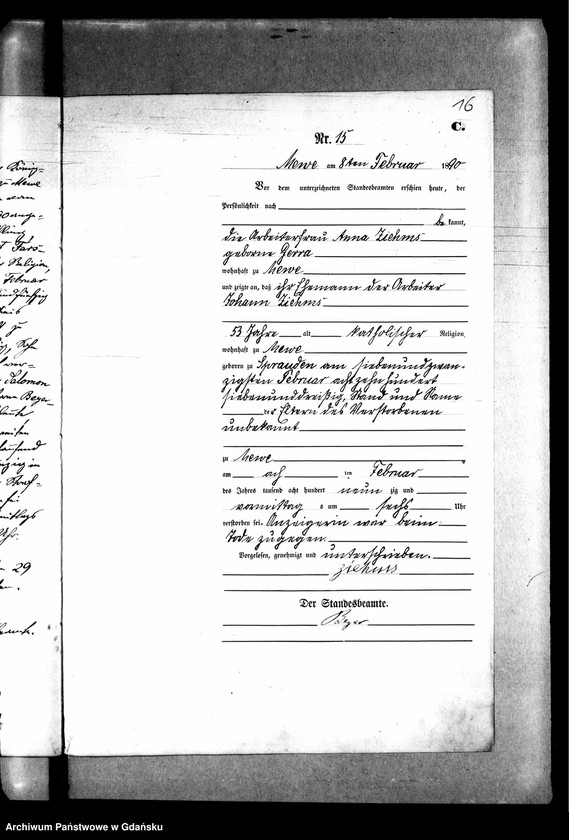 16
C.
Nr. 15
Mewe am 8ten Februar 1890
Vor dem unterzeichneten Standesbeamten erschien heute, der
Persönlichkeit nach
bekannt,
die Arbeiterfrau Anna Ziehms
geborne Gerra
wohnhaft zu Mewe
und zeigte an, daß ihr Ehemann der Arbeiter
Johann Ziehms
53 Jahre alt katholischer Religion
wohnhaft zu Mewe
geboren zu Sprauden am siebenundzwan-
zigsten Februar achtzehnhundert
siebenunddreißig, Stand und Name
der Eltern des Verstorbenen
unbekannt
zu Mewe
am ach ten Februar
des Jahres tausend acht hundert neun zig und
vormittag s um sechs Uhr
verstorben sei. Anzeigerin war beim
Tode zugegen.
Vorgelesen, genehmigt und unterschrieben.
Ziehms
Der Standesbeamte.
Beyer
König-
zu Mewe
Religion,
Februar
Salomon
29
Archiwum Państwowe w Gdańsku